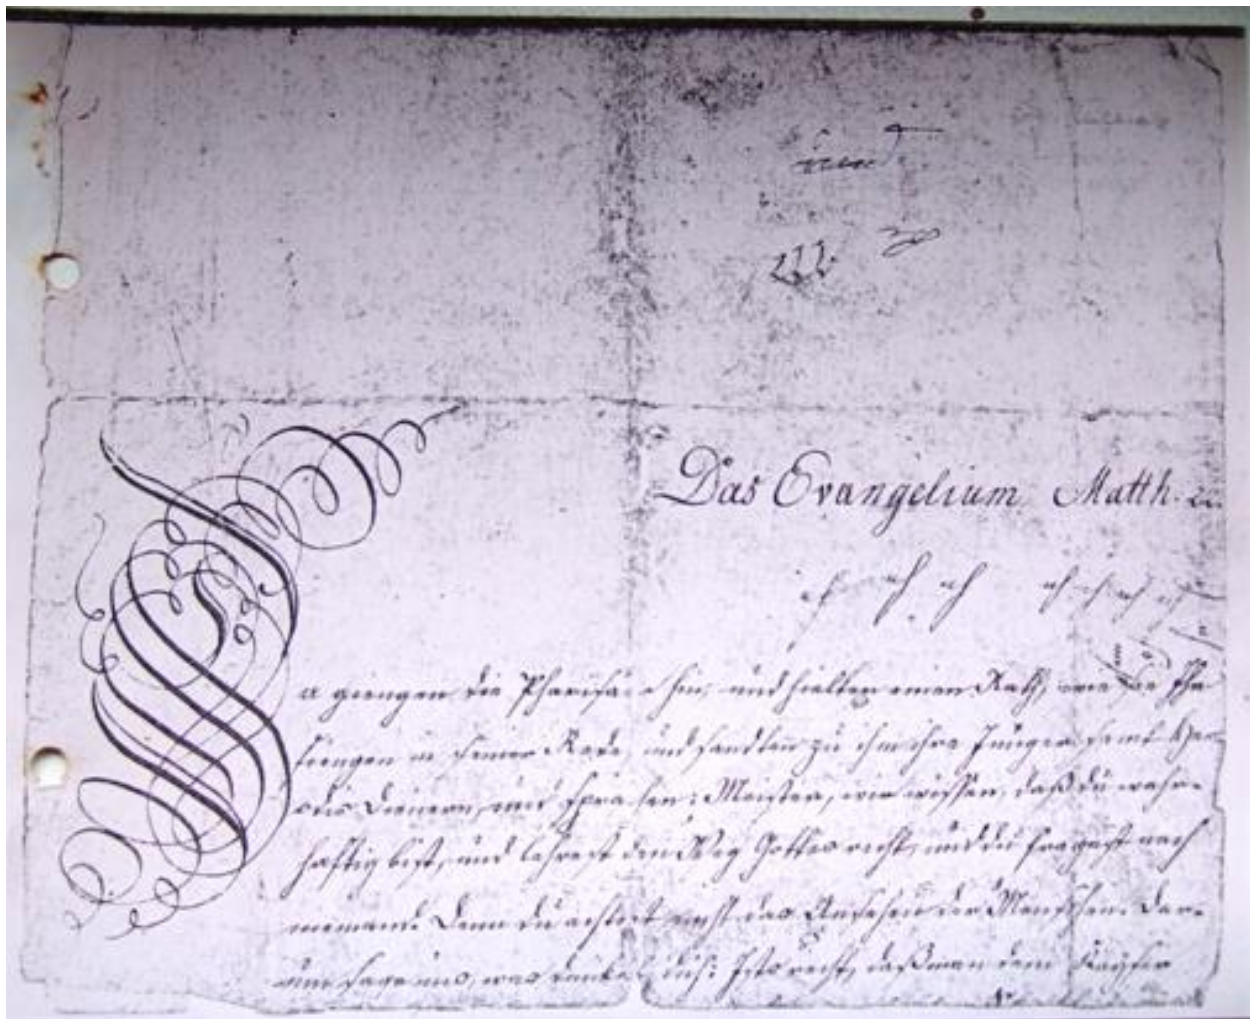 und
Das Evangelium Matth. 22.
Da giengen die Pharisäer hin, und hielten einen Rath, wie sie ihn
fiengen in seiner Rede, und sandten zu ihm ihre Jünger samt Her⸗
odis Dienern, und sprachen: Meister, wir wissen, daß du wahr⸗
haftig bist, und lehrest den Weg Gottes recht, und du fragest nach
niemand. Denn du achtest nicht das Ansehen der Menschen. Dar⸗
um sage uns, was dünket dich: Ists recht, daß man dem Kayser